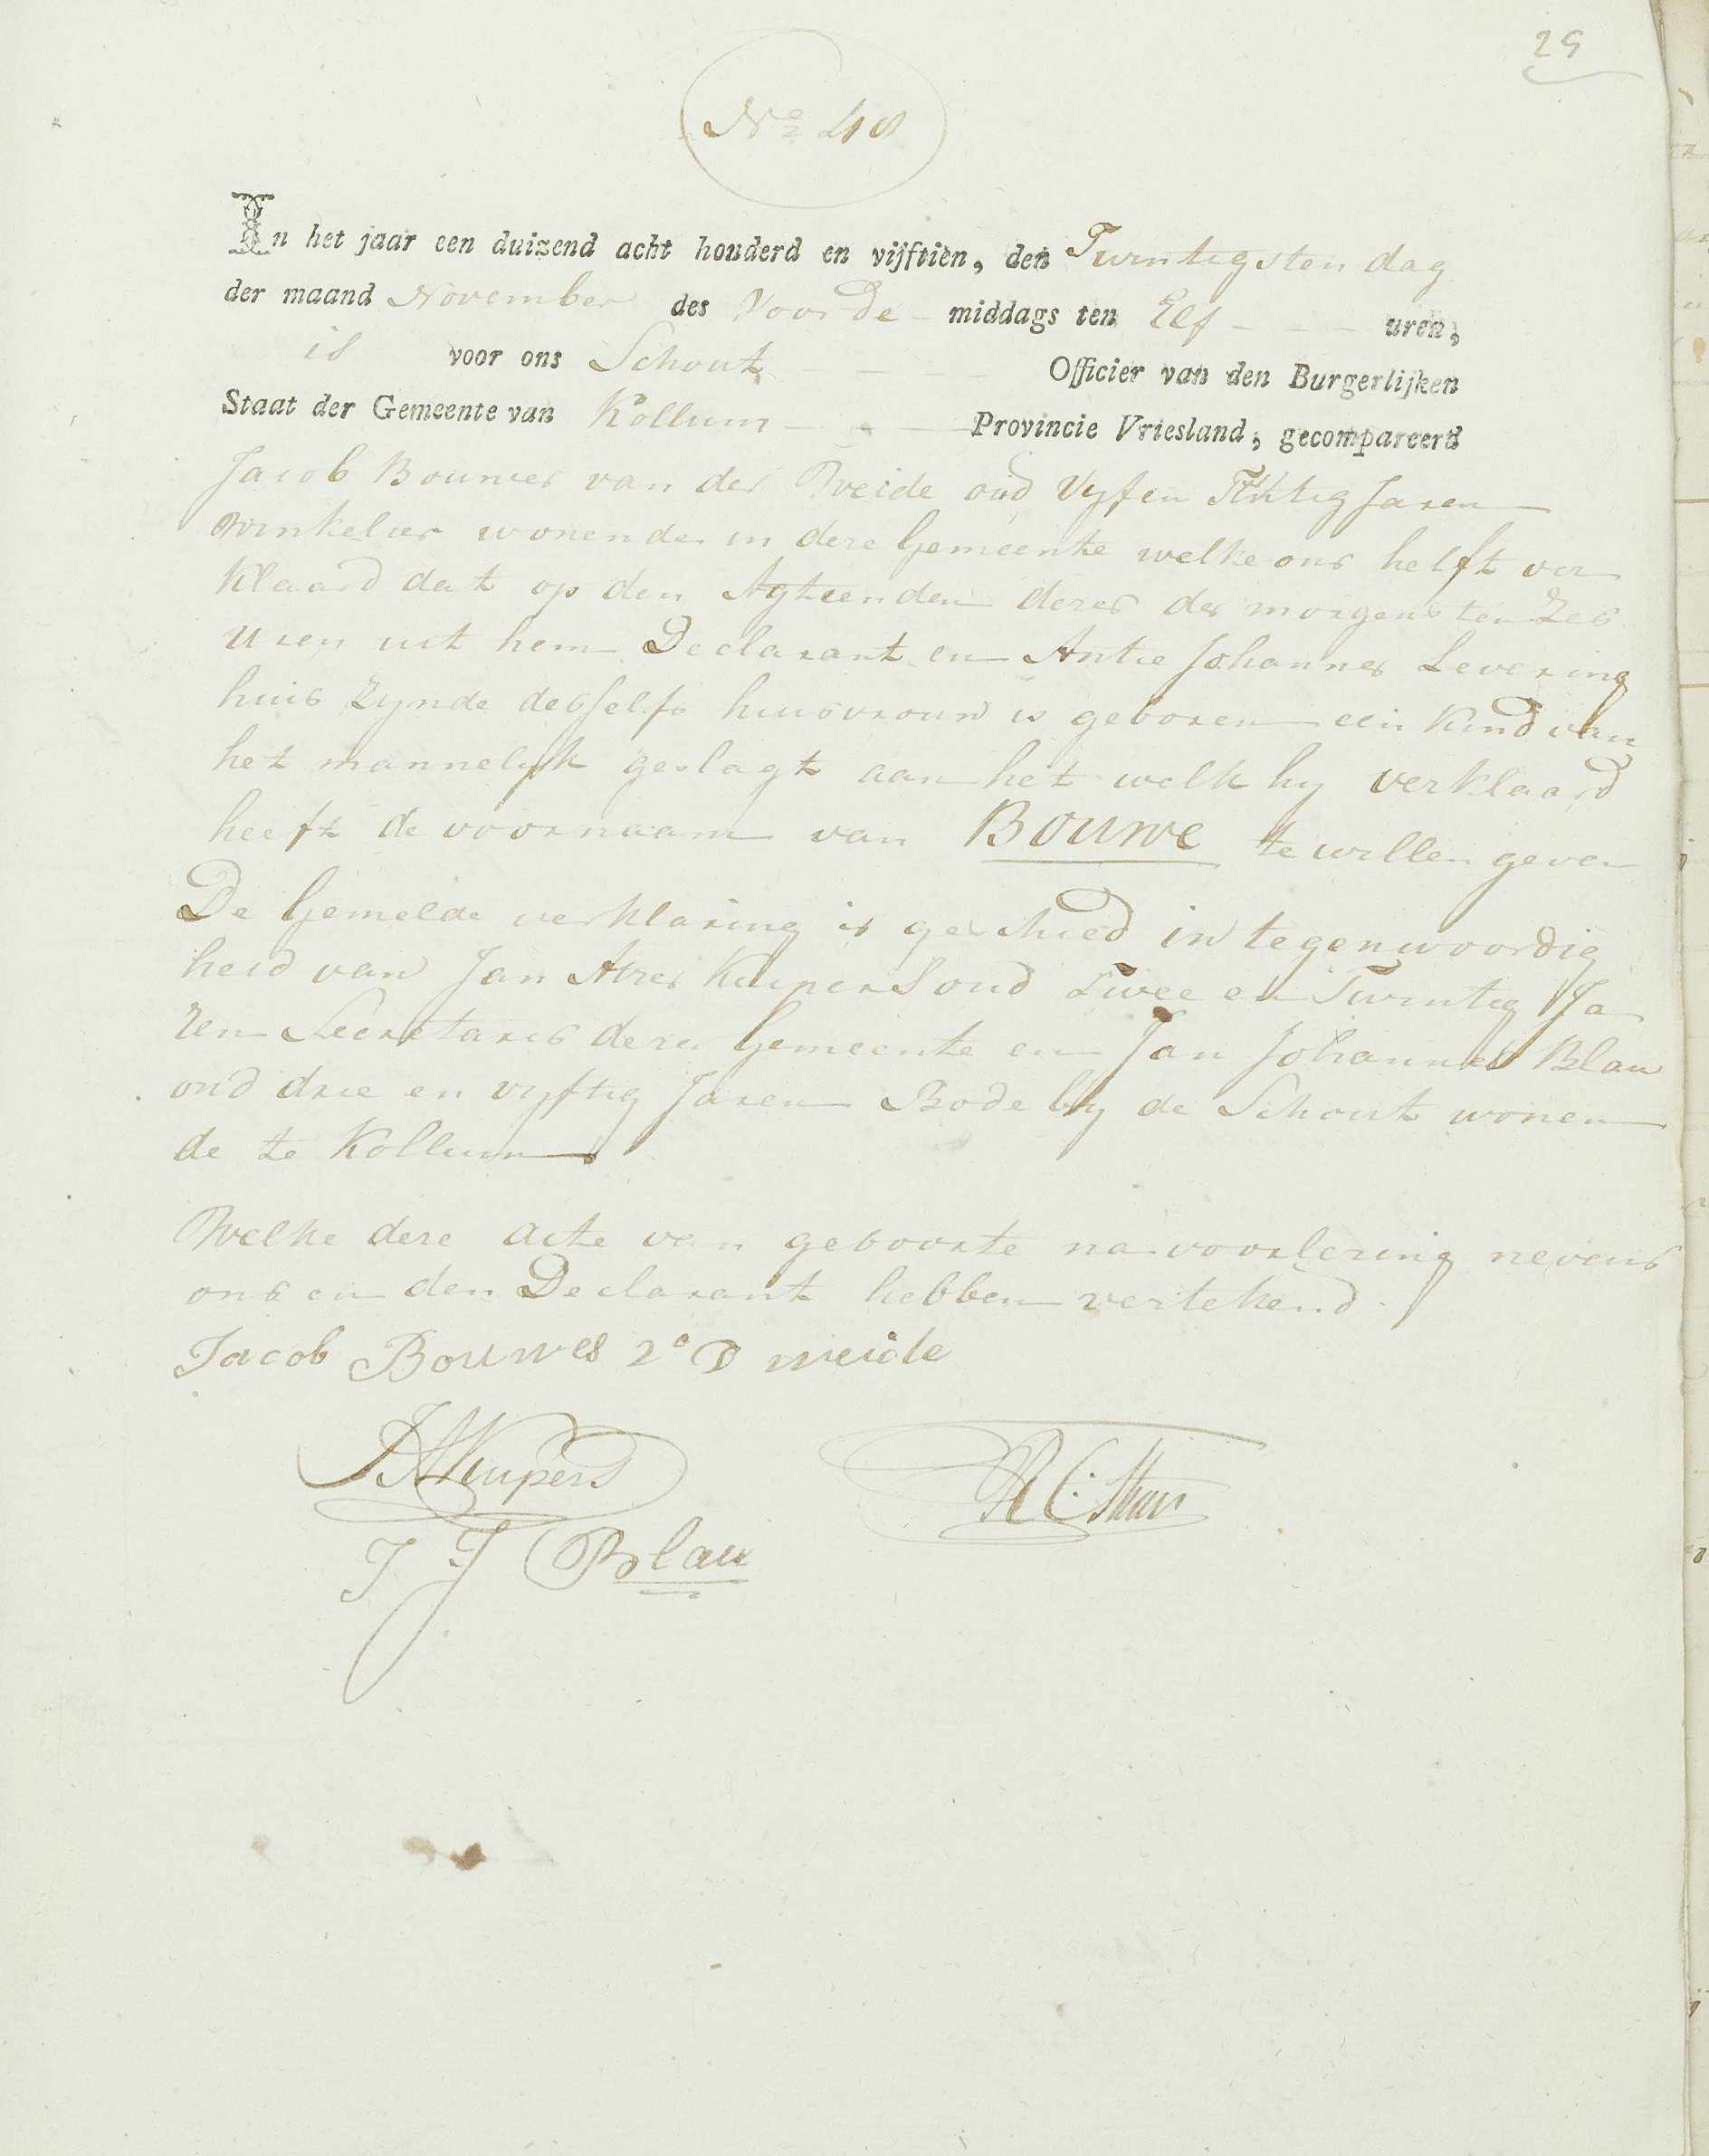 25
No 48
In het jaar een duizend acht honderd en vijftien, den Twintigsten dag
der maand November des Voorde middags ten Elf uren,
is voor ons Schout Officier van den Burgerlijken
Staat der Gemeente van Kollum Provincie Vriesland, gecompareerd
Jacob Bouwes van der Weide oud Vyf en jaren
Winkelier wonende in deze Gemeente welke ons heeft ver
klaard dat op den Agtienden dezer des morgens ten Zes
uren uit hem Declarant en Antie Johannes Levering
huis zynde desselfs huisvrouw is geboren een kind van
het mannelyk geslagt aan het welk hy verklaard
heeft de voornaam van Bouwe te willen geven
De Gemelde verklaring is geschied in tegenwoordig
heid van Jan Atzes Kuipers oud Twee en Twintig Ja
ren Secretaris dezer Gemeente en Jan Johannes Blau
oud drie en vyftig Jaren Bode by de Schout wonen
de te Kollum
Welke deze acte van geboorte na voorlezing nevens
ons en den Declarant hebben vertekend
Jacob Bouwes v D weide
JAKuipers
J J Blau